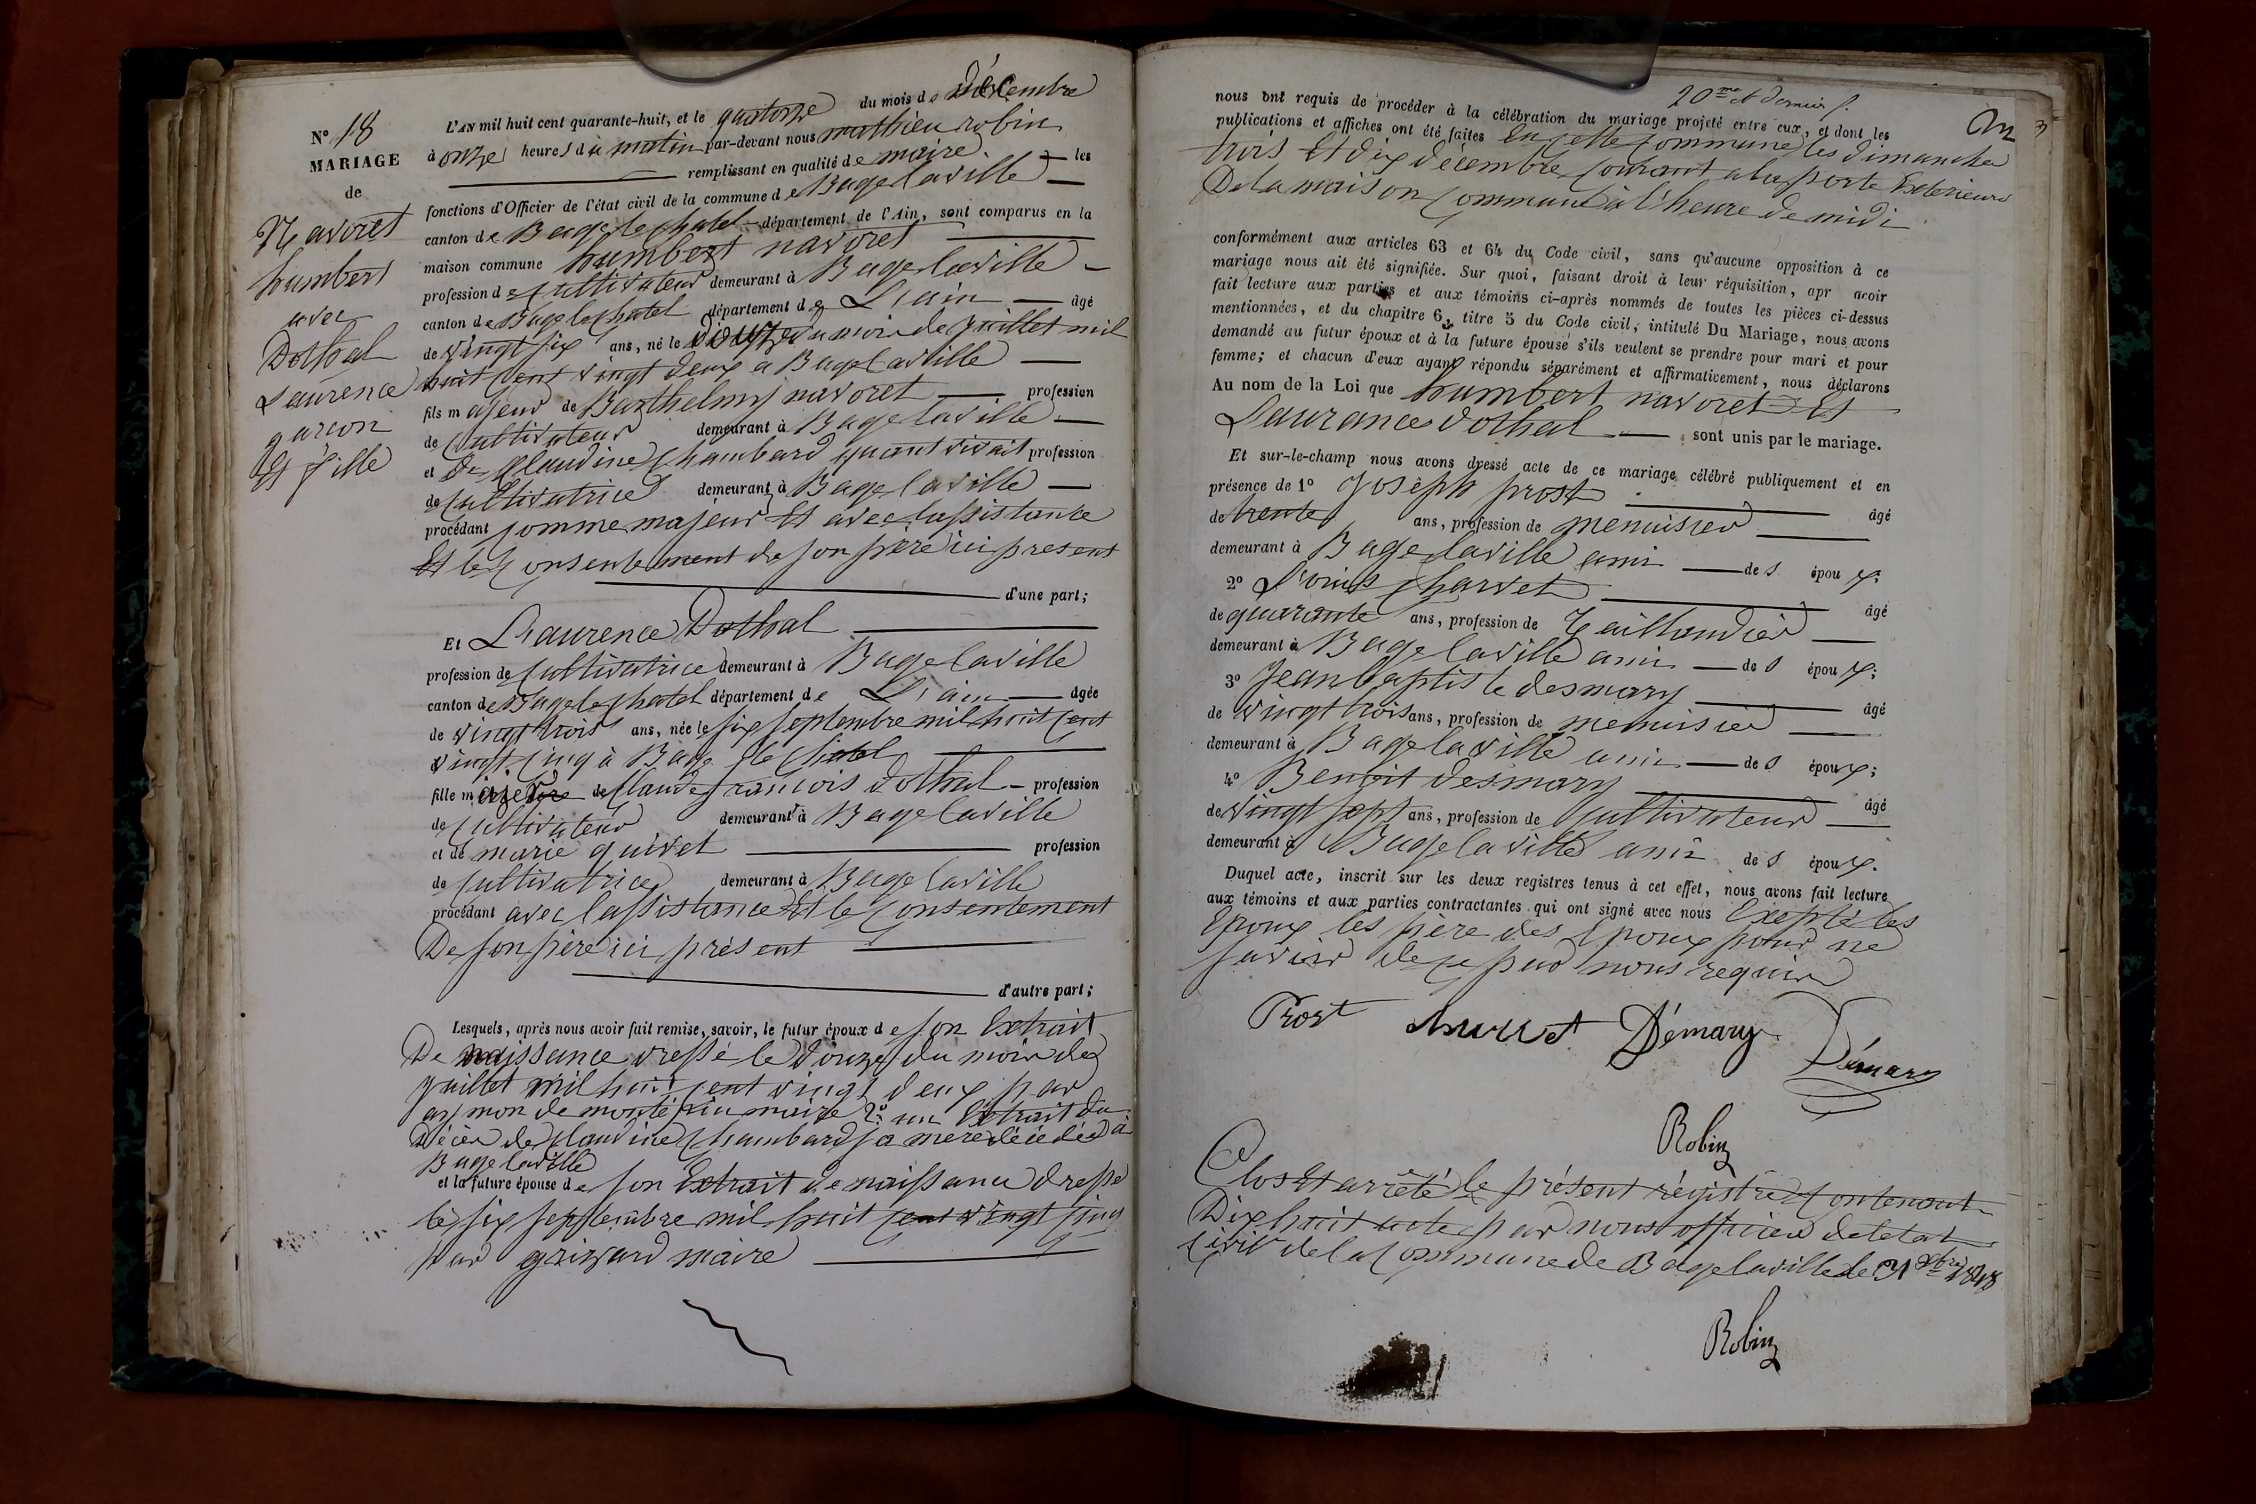 N° 18
MARIAGE
de
Navoret
humbert
avec
Dothal
Laurence
garcon
Et fille
L'AN mil huit cent quarante-huit, et le quatorze du mois de Décembre
à onze heures du matin par-devant nous mathieu robin
remplissant en qualité de maire les
fonctions d'Officier de l'état civil de la commune de Bage laville
canton de Bage le chatel département de l'Ain, sont comparus en la
maison commune humbert navoret
profession de cultivateur demeurant à Bage laville
canton de Bage le chatel département de L'ain âgé
de vingt six ans, né le douze du mois de juillet mil
huit cent vingt deux a Bage laville
fils majeur de Barthelmy navoret profession
de cultivateur demeurant à Bage laville
et de Claudine chambard quant vivait profession
de cultivatrice demeurant à Bage laville
procédant comme majeur Et avec lassistance
Et le consentement de son père ici present
d'une part;
Et Laurence Dothal
profession de cultivatrice demeurant à Bage laville
canton de Bage le chatel département de L'ain âgée
de vingt trois ans, née le six septembre mil huit cent
vingt cinq à Bage le chatel
fille majeure de claude francois dothal profession
de cultivateur demeurant à Bage laville
et de marie guivet profession
de cultivatrice demeurant à Bage laville
procédant avec lassistance Et le consentement
De son père ici présent
d'autre part;
Lesquels, après nous avoir fait remise, savoir, le futur époux de son Extrait
De naissance dressé le douze du mois de
juillet mil huit cent vingt deux par
maire 2° un Extrait du
Décès de claudine chambard sa mere décédée à
Bage laville
et la future épouse de son Extrait de naissance dressé
le six septembre mil huit cent vingt cinq
par grizard maire
20me et dernier f.
nous ont requis de procéder à la célébration du mariage projeté entre eux, et dont les
publications et affiches ont été faites En cette commune les dimanche
trois Et dix décembre courant a la porte Exterieure
De la maison commune à l'heure de midi
conformément aux articles 63 et 64 du Code civil, sans qu'aucune opposition à ce
mariage nous ait été signifiée. Sur quoi, faisant droit à leur réquisition, apr avoir
fait lecture aux parties et aux témoins ci-après nommés de toutes les pièces ci-dessus
mentionnées, et du chapitre 6, titre 5 du Code civil, intitulé Du Mariage, nous avons
demandé au futur époux et à la future épouse s'ils veulent se prendre pour mari et pour
femme; et chacun d'eux ayant répondu séparément et affirmativement, nous déclarons
Au nom de la Loi que humbert navoret Et
Laurance dothal sont unis par le mariage.
Et sur-le-champ nous avons dressé acte de ce mariage célébré publiquement et en
présence de 1° Joseph prost âgé
de trente ans, profession de menuisier
demeurant à Bage laville ami des époux;
2° Louis charvet âgé
de quarante ans, profession de Taillandier
demeurant à Bage laville ami des époux;
3° Jean baptiste desmary âgé
de vingt trois ans, profession de menuisier
demeurant à Bage laville ami des époux;
4° Benoit desmary âgé
de vingt sept ans, profession de cultivateur
demeurant à Bage laville ami des époux.
Duquel acte, inscrit sur les deux registres tenus à cet effet, nous avons fait lecture
aux témoins et aux parties contractantes qui ont signé avec nous Exepté les
Epoux les père des Epoux pour ne
savoir de ce par nous requis
Prost charvet Démary Démary
Robin
Clos Et arrêté le présent régistre contenant
Dix huit acte par nous officier de letat
civil de la Commune de Bage laville le 31 Xbre 1848
Robin